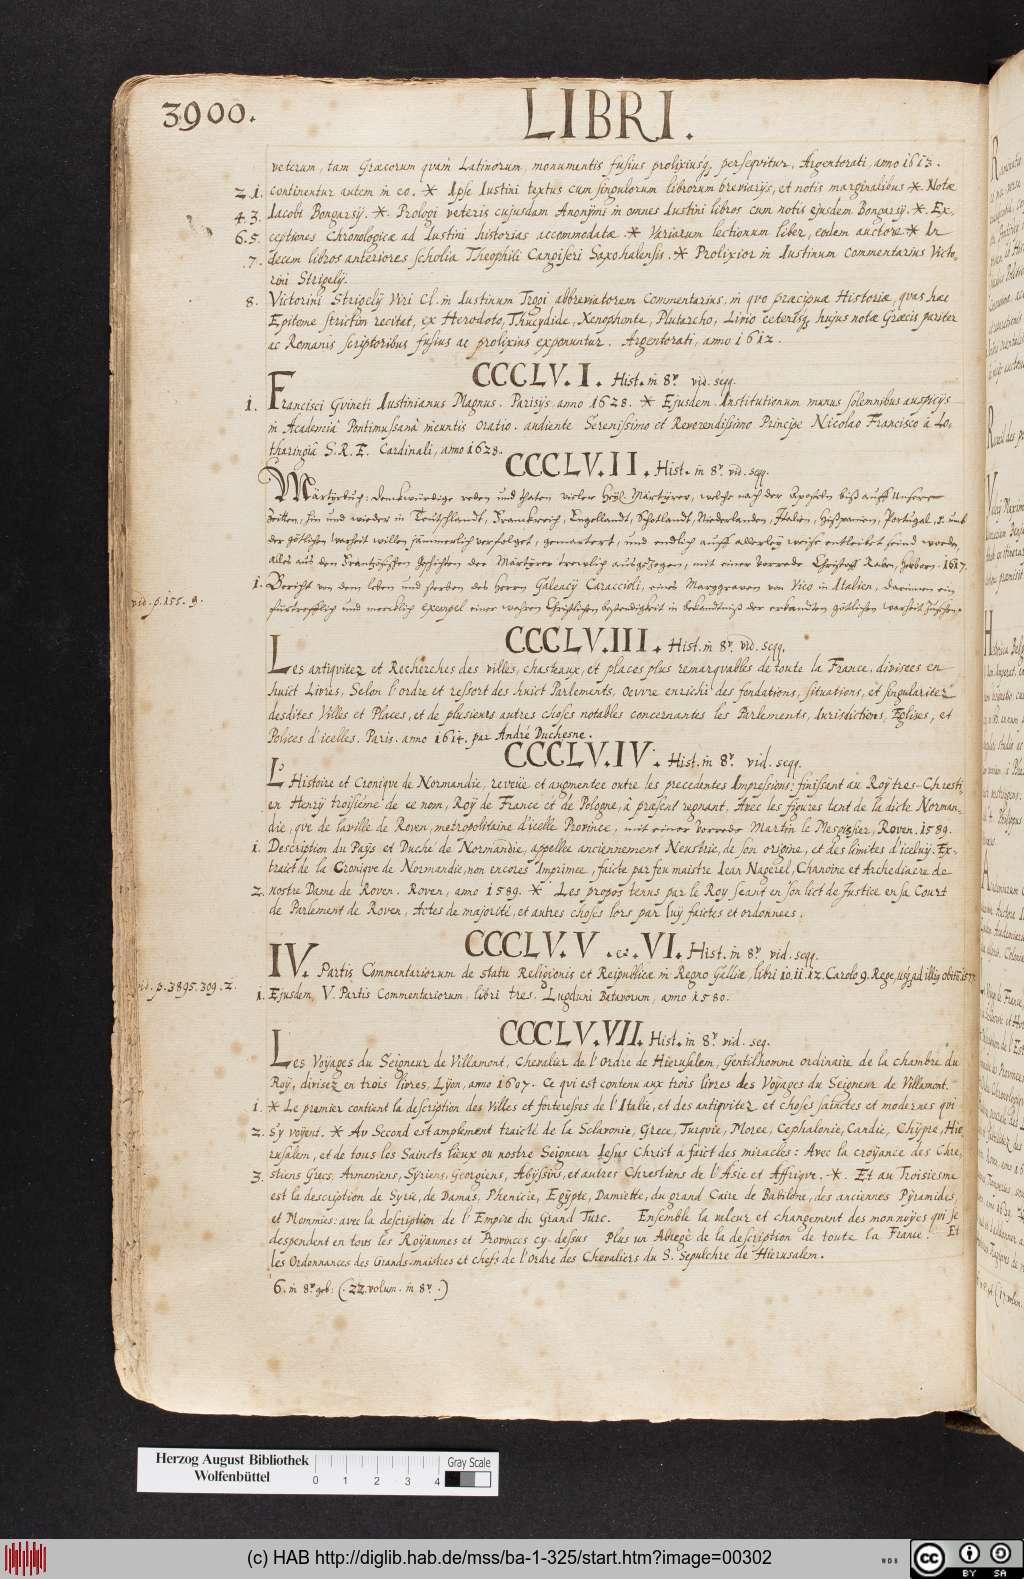 3900.
LIBRI.
veterum, tam Græcorum quam Latinorum, monumentis fusius prolixiusq, persequitur. Argentorati, anno 1613.
2. 1. continentur autem in eo. * Ipse Iustini textus cum singulorum librorum breviarijs, et notis marginalibus *. Notæ
4. 3. Iacobi Bongarsij. *. Prologi veteris cujusdam Anonymi in omnes Iustini libros cum notis ejusdem Bongarsij. *. Ex,
6. 5. ceptiones Chronologicæ ad Iustini historias accommodatæ. * Variarum lectionum liber, eodem auctore * In
7. decem libros anteriores scholia Theophili Cangiseri Saxohalensis. * Prolixior in Iustinum commentarius Victo-
rini Strigelij.
8. Victorini Strigelij Viri Cl. in Iustinum Trogi abbreviatorem commentarius, in quo præcipuæ Historiæ, quas hæc
Epitome strictim recitat, ex Herodoto, Thucydide, Xenophonte, Plutarcho, Livio ceterisq, hujus notæ Græcis pariter
ac Romanis scriptoribus fusius ac prolixius exponuntur. Argentorati, anno 1612.
CCCLV. I. Hist. in 8º. vid. seqq.
1. Francisci Guineti Iustinianus Magnus. Parisijs anno 1628. * Ejusdem Institutionum munus solemnibus auspicijs
in Academiâ Pontimussanâ ineuntis oratio. audiente Serenissimo et Reverendissimo Principe Nicolao Francisco à Lo,
tharingiâ S. R. E. Cardinali, anno 1628.
CCCLV. II. Hist. in 8º. vid. seqq.
Märtyrbuch: Denckwürdige reden und thaten vieler Heyl. Märtyrer, welche nach der Aposteln biß auff Unsere
Zeitten, hin und wieder in Teütschlandt, Franckreich, Engellandt, Schotlandt, Niederlanden, Italien, Hispanien, Portugal, umb
der göttlichen warheit willen jämmerlich verfolget, gemartert, und endlich auff allerley weise entleibet seind worden,
alles aus den Frantzösischen Geschichten der Märtyrer trewlich ausgezogen, mit einer vorrede Christoff Raben, Herborn. 1617.
1. Bericht von dem leben und sterben des Herrn Galeacij Caraccioli, eines Marggraven von Vico in Italien, darinnen ein
vid. p. 155. 9.
fürtrefflich und mercklich exempel einer wahren Christlichen bestendigkeit in bekandtniß der erkandten göttlichen warheit
CCCLV. III. Hist. in 8º. vid. seqq.
Les antiquitez et Recherches des villes, chasteaux, et places plus remarquables de toute la France, divisees en
huict Livres, Selon l'ordre et ressort des huict Parlements, Oeuvre enrichi des fondations, situations, et singularitez
desdites Villes et Places, et de plusieurs autres choses notables concernantes les Parlements, Iurisdictions, Eglises, et
Polices d'icelles. Paris. anno 1614. par André Duchesne.
CCCLV. IV. Hist. in 8º. vid. seqq.
L' Histoire et Cronique de Normandie, reveüe et augmentee outre les precedentes Impressions: finissant au Roy tres-Chresti
en Henry troisieme de ce nom, Roy de France et de Pologne, à present regnant. Avec les figures tant de la dicte Norman-
die, que de la ville de Roven, metropolitaine d'icelle Province, mit einer Vorrede Martin le Mesgisser, Roven. 1589.
1. Description du Pays et Duché de Normandie, appellée anciennement Neustrie, de son origine, et des limites d'iceluy. Ex-
traict de la Cronique de Normandie, non encores Imprimee, faicte par feu maistre Iean Nagerel, Chanoine et Archediacre de
2. nostre Dame de Roven. Roven, anno 1589. * Les propos tenus par le Roy seant en son lict de Justice en sa Court
de Parlement de Roven, Actes de majorité, et autres choses lors par luy faictes et ordonnees.
CCCLV. V. et. VI. Hist. in 8º. vid. seqq.
IV. Partis Commentariorum de statu Religionis et Reipublicæ in Regno Galliæ, libri 10. 11. 12. Carolo 9. Rege, usq ad illig obitũ 1577.
vid. p. 3895. 309. 2.
1. Ejusdem, V. Partis Commentariorum, libri tres. Lugduni Batavorum, anno 1580.
CCCLV. VII. Hist. in 8º. vid. seq.
Les Voyages du Seigneur de Villamont, Chevalier de l'ordre de Hierusalem, Gentilhomme ordinaire de la chambre du
Roy, divisez en trois livres, Lyon, anno 1607. Ce qui est contenu aux trois livres des Voyages du Seigneur de Villamont.
1. * Le premier contient la description des Villes et forteresses de l'Italie, et des antiquitez et choses sainctes et modernes qui
2. s'y voyent. * Au Second est amplement traicté de la Sclavonie, Grece, Turquie, Moree, Cephalonie, Candie, Chypre, Hie
rusalem, et de tous les Saincts lieux ou nostre Seigneur Iesus Christ a faict des miracles: Avec la croyance des Chre,
3. stiens Grecs, Armeniens, Syriens, Georgiens, Abyssins, et autres Chrestiens de l'Asie et Affrique. *. Et au Troisiesme
est la description de Syrie, de Damas, Phenicie, Egypte, Damiette, du grand Caire de Babilone, des anciennes Pyramides,
et Mommies: avec la description de l'Empire du Grand Turc. Ensemble la valeur et changement des monnoyes qui se
despendent en tous les Royaumes et Provinces cy-dessus Plus un Abregé de la description de toute la France. Et
les Ordonnances des Grands-maistres et chefs de l'Ordre des Chevaliers du S. Sepulchre de Hierusalem.
6. in 8º geb: (. 22. volum. in 8º .)
Herzog August Bibliothek
Wolfenbüttel
0 1 2 3 4
Gray Scale
(c) HAB http://diglib.hab.de/mss/ba-1-325/start.htm?image=00302
WDB
CC BY SA